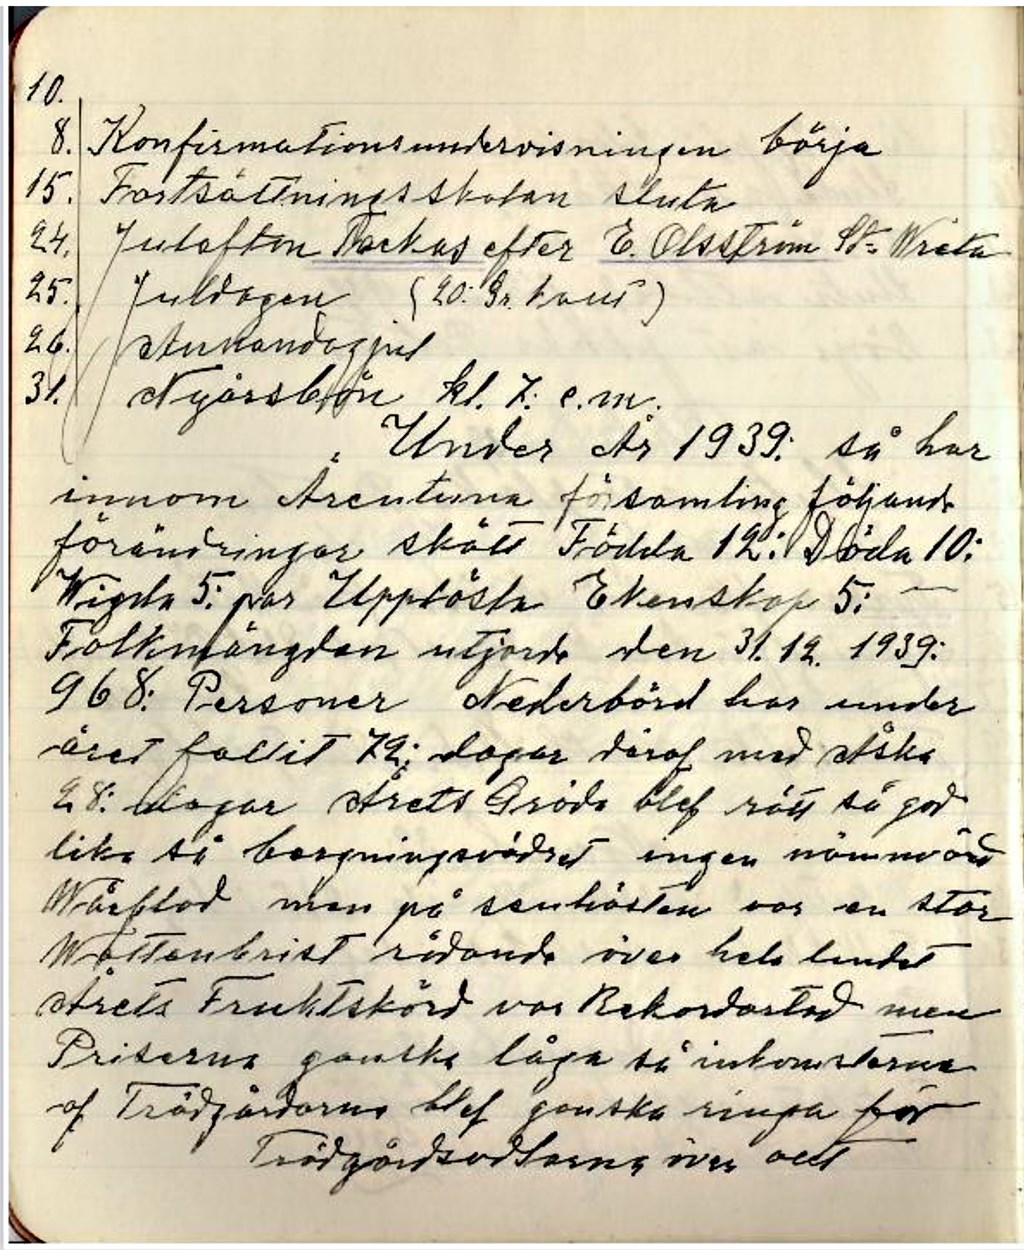 10.
8. Konfirmationsundervisningen börja
15. Fortsättningsskolan sluta
24. Julafton Tackas efter E. Olsström St= Wreta
25. Juldagen (20: Gr. kallt)
26. Annandagjul
31. Nyårsbön kl. 7: e.m.
Under År 1939: så har
innom Ärentuna församling följande
förändringar skött Födda 12: Döda 10:
Wigda 5: par Upplösta Ektenskap 5: —
Folkmängden utjorde den 31. 12. 1939:
968: Personer Nederbörd har under
året fallit 72: dagar däraf med Åska
28: dagar Årets Gröda blef rätt så god
lika så bergningsvädret ingen nämnvärd
Wårflod men på senhösten var en stor
Wattenbrist rådande över hela landet
Årets Fruktskörd var Rekordartad men
Priserna ganska låga så inkomsterna
af Trädgårdarna blef ganska ringa för
Trädgårdsodlarna över allt